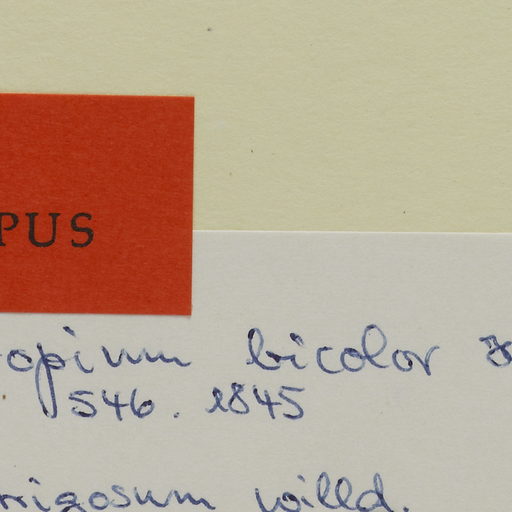 PUS
opium bicolor
546. 1845
rigosum willd.